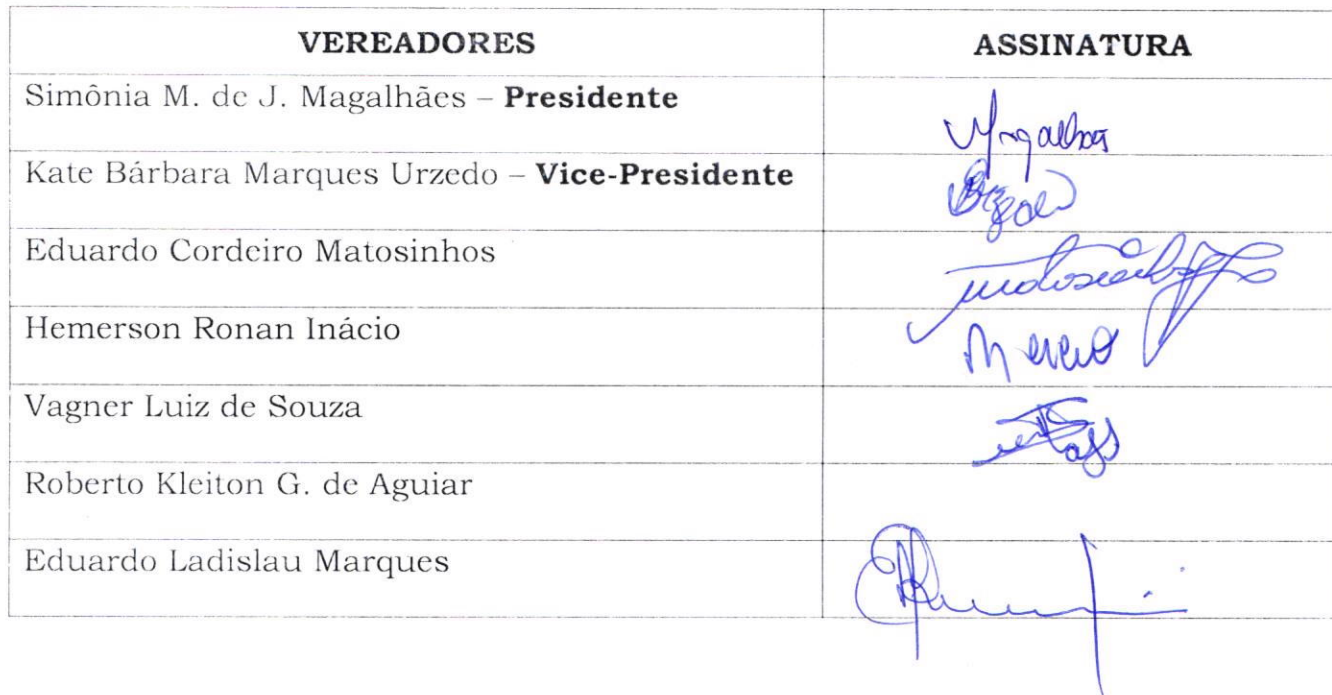 VEREADORES ASSINATURA
Simônia M. de J. Magalhães – Presidente
Kate Bárbara Marques Urzedo – Vice-Presidente
Eduardo Cordeiro Matosinhos
Hemerson Ronan Inácio
Vagner Luiz de Souza
Roberto Kleiton G. de Aguiar
Eduardo Ladislau Marques